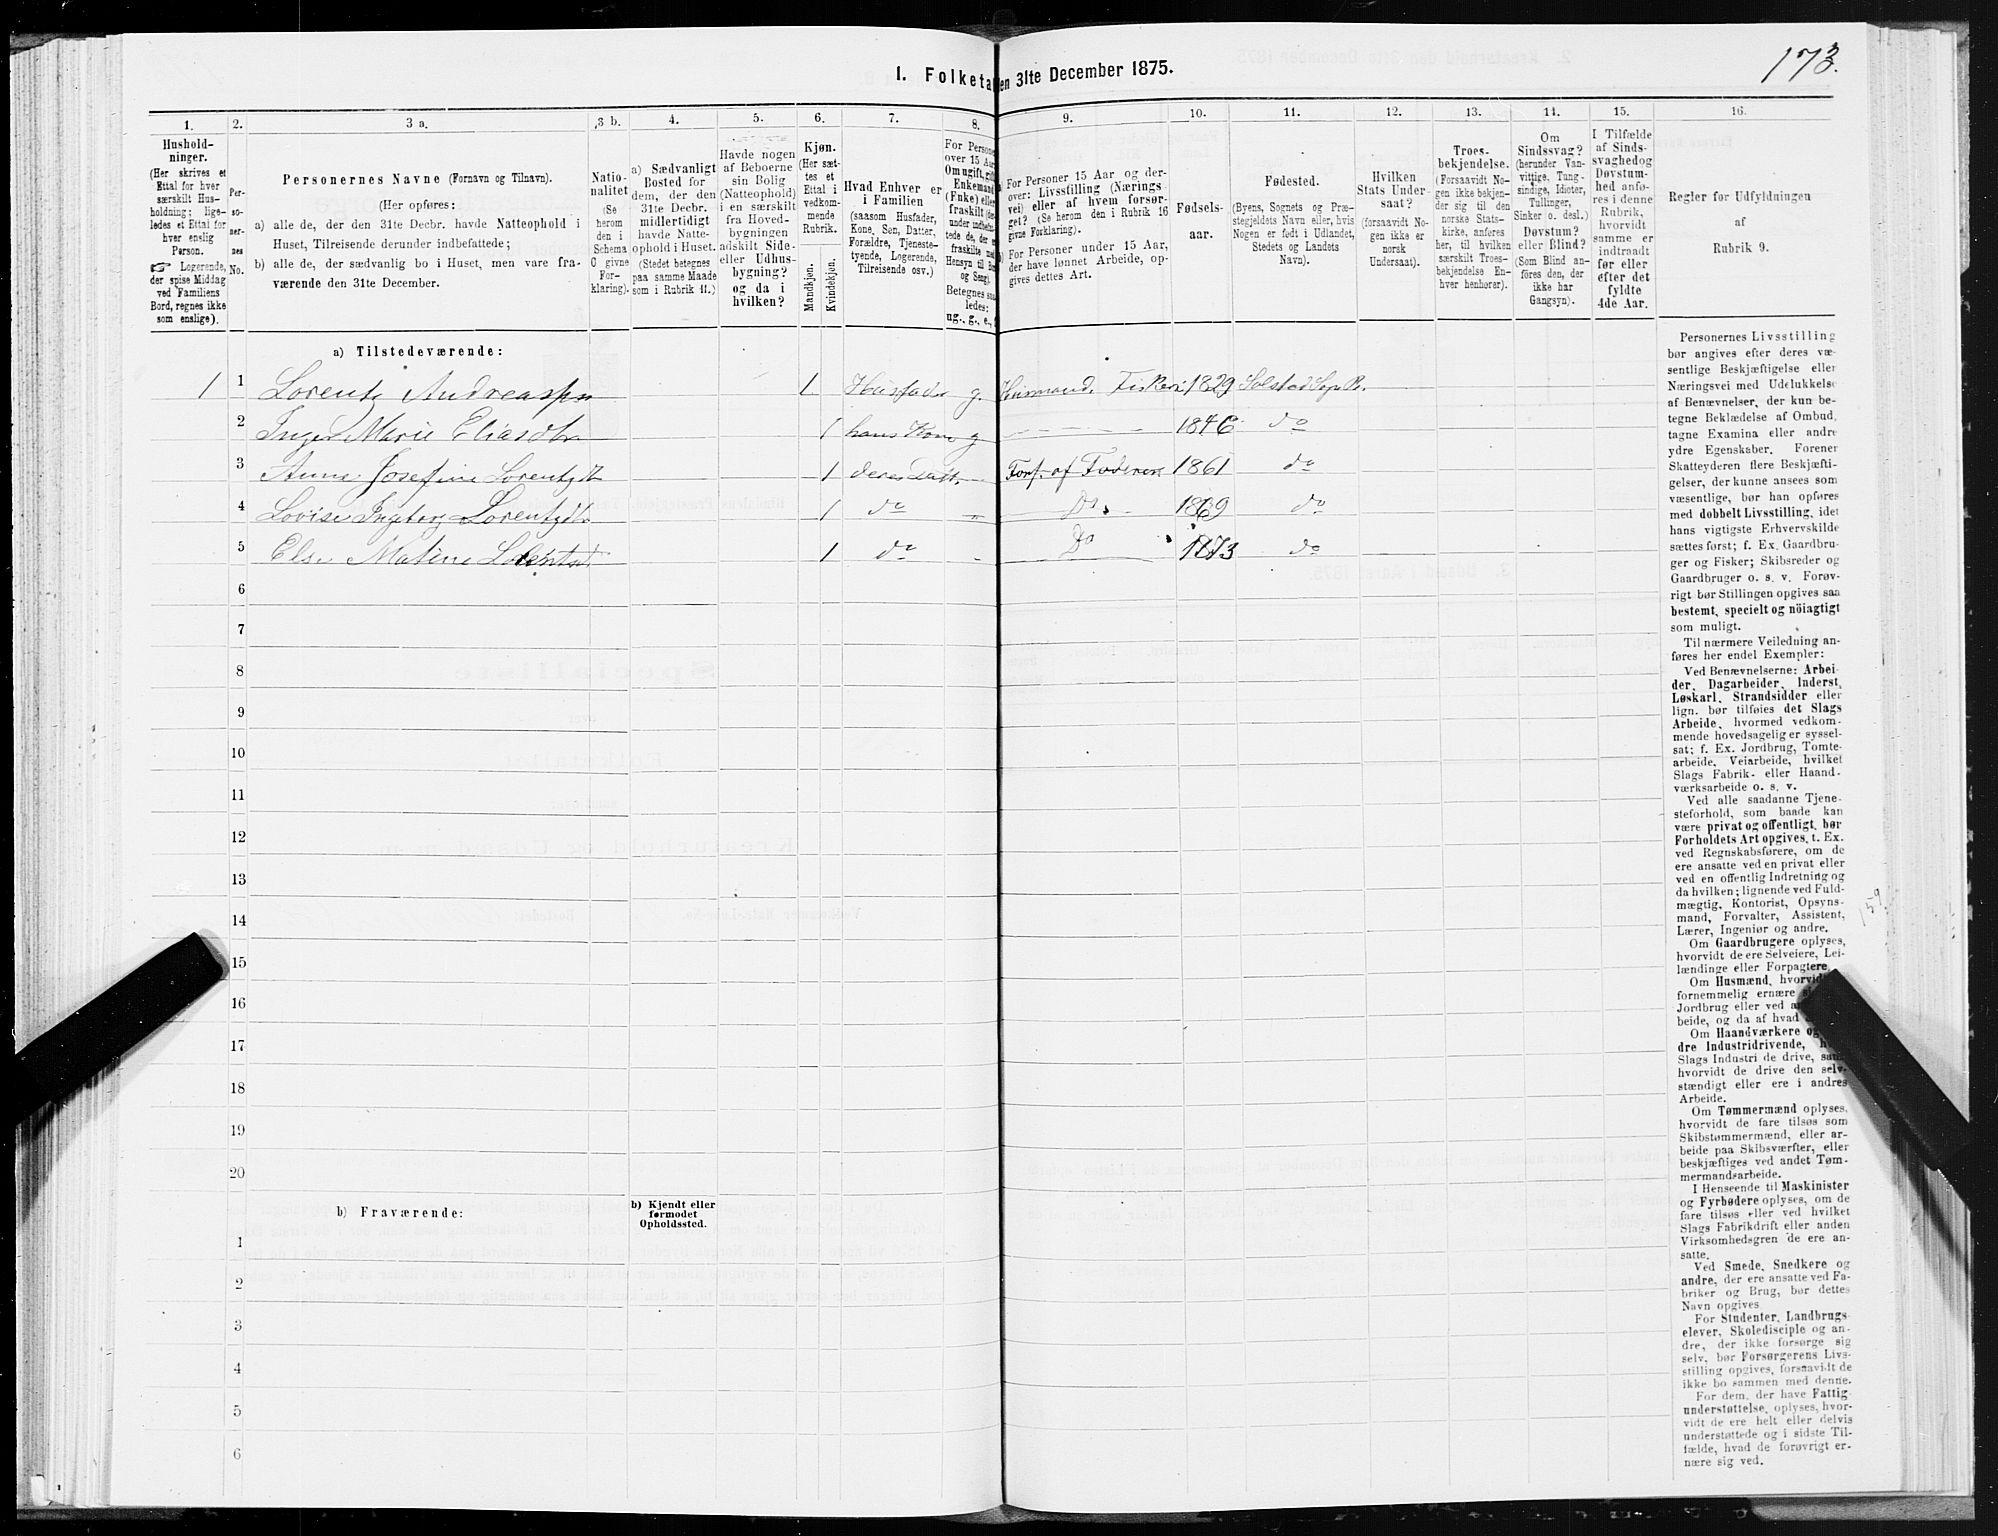 173.
1. Folketal den 31te December 1875.
1. 2. 3 a. 3 b. 4. 5. 6. 7. 8. 9. 10. 11. 12. 13. 14. 15. 16.
Hushold-
ninger.
(Her skrives et
Ettal for hver
særskilt Hus-
holdning; lige-
ledes et Ettal for
hver enslig
Person.
☞ Logerende,
der spise Middag
ved Familiens
Bord, regnes ikke
som enslige).
Per-
so-
ner-
nes
No.
Personernes Navne (Fornavn og Tilnavn).
(Her opføres:
a) alle de, der den 31te Decbr. havde Natteophold i
Huset, Tilreisende derunder indbefattede;
b) alle de, der sædvanlig bo i Huset, men vare fra-
værende den 31te December.
Natio-
nalitet
(Se
herom
den i
Schema
C givne
For-
klaring).
a) Sædvanligt
Bosted for
dem, der den
31te Decbr.
midlertidigt
havde Natte-
ophold i Huset.
(Stedet betegnes
paa samme Maade
som i Rubrik 11.)
Havde nogen
af Beboerne
sin Bolig
(Natteophold)
i en særskilt
fra Hoved-
bygningen
adskilt Side-
eller Udhus-
bygning?
og da i
hvilken?
Kjøn.
(Her sæt-
tes et
Ettal i
vedkom-
mende
Rubrik.
Mandkjøn.
Kvindekjøn.
Hvad Enhver er
i Familien
(saasom Husfader,
Kone, Søn, Datter,
Forældre, Tjeneste-
tyende, Logerende,
Tilreisende osv.)
For Personer
over 15 Aar
Om ugift, gift,
Enkemand
(Enke) eller
fraskilt
Betegnes saa-
ledes:
ug., g., e.,
a) For Personer 15 Aar og der-
over: Livsstilling (Nærings-
vei) eller af hvem forsør-
get? (Se herom den i Rubrik 16
givne Forklaring).
b) For Personer under 15 Aar,
der have lønnet Arbeide, op-
gives dettes Art.
Fødsels-
aar.
Fødested.
(Byens, Sognets og Præ-
stegjeldets Navn eller, hvis
Nogen er født i Udlandet,
Stedets og Landets
Navn).
Hvilken
Stats Under-
saat?
(forsaavidt No-
gen ikke er
norsk
Undersaat).
Troes-
bekjendelse.
(Forsaavidt No-
gen ikke bekjen-
der sig til den
norske Stats-
kirke, anføres
her, til hvilken
særskilt Troes-
bekjendelse En-
hver henhører).
Om
Sindssvag?
(herunder Van-
vittige, Tung-
sindige, Idioter,
Tullinger,
Sinker o. desl.)
Døvstum?
eller Blind?
(Som Blind an-
føres den, der
ikke har
Gangsyn).
I Tilfælde
af Sinds-
svaghed og
Døvstum-
hed anfø-
res i denne
Rubrik,
hvorvidt
samme er
indtraadt
før eller
efter det
fyldte
4de Aar.
Regler for Udfyldningen
af
Rubrik 9.
a) Tilstedeværende:
1 1 Lorentz Andreassen 1 Husfader g. Husmand. Fisker 1829 Solstad Sogn
2 Inger Marie Eliasdtr 1 hans Kone g 1846 do
3 Anne Josefine Lorentzdt 1 deres Datt. Fors. af Faderen 1861 do
4 Lovise Ingeborg Lorentzdtr 1 do Do 1869 do
5 Else Matine Lorentsd 1 do Do 1873 do
6
7
8
9
10
11
12
13
14
15
16
17
18
19
20
b) Fraværende:
b) Kjendt eller
formodet
Opholdssted.
1
2
3
4
5
6
Personernes Livsstilling
bør angives efter deres væ-
sentlige Beskjæftigelse eller
Næringsvei med Udelukkelse
af Benævnelser, der kun be-
tegne Beklædelse af Ombud,
tagne Examina eller andre
ydre Egenskaber. Forener
Skatteyderen flere Beskjæfti-
gelser, der kunne ansees som
væsentlige, bør han opføres
med dobbelt Livsstilling, idet
hans vigtigste Erhvervskilde
sættes først; f. Ex. Gaardbru-
ger og Fisker; Skibsreder og
Gaardbruger o. s. v. Forøv-
rigt bør Stillingen opgives saa
bestemt, specielt og nöiagtigt
som muligt.
Til nærmere Veiledning an-
føres her endel Exempler:
Ved Benævnelserne: Arbei-
der, Dagarbeider, Inderst,
Løskarl, Strandsidder eller
lign. bør tilføies det Slags
Arbeide, hvormed vedkom-
mende hovedsagelig er syssel-
sat; f. Ex. Jordbrug, Tomte-
arbeide, Veiarbeide, hvilket
Slags Fabrik- eller Haand-
værksarbeide o. s. v.
Ved alle saadanne Tjene-
steforhold, som baade kan
være privat og offentligt, bør
Forholdets Art opgives, t. Ex.
ved Regnskabsførere, om de
ere ansatte ved en privat eller
ved en offentlig Indretning og
da hvilken; lignende ved Fuld-
mægtig, Kontorist, Opsyns-
mand, Forvalter, Assistent,
Lærer, Ingeniør og andre.
Om Gaardbrugere oplyses,
hvorvidt de ere Selveiere, Lei-
lændinge eller Forpagtere.
Om Husmænd, hvorvidt
fornemmelig ernære
Jordbrug eller ved
beide, og da af hvad
Om Haandværkere og
dre Industridrivende,
Slags Industri de drive, samt
hvorvidt de drive den selv-
stændigt eller ere i andres
Arbeide.
Om Tømmermænd oplyses,
hvorvidt de fare tilsøs som
Skibstømmermænd, eller ar-
beide paa Skibsværfter, eller
beskjæftiges ved andet Tøm-
mermandsarbeide.
I Henseende til Maskinister
og Fyrbødere oplyses, om de
fare tilsøs eller ved hvilket
Slags Fabrikdrift eller anden
Virksomhedsgren de ere an-
satte.
Ved Smede, Snedkere og
andre, der ere ansatte ved Fa-
briker og Brug, bør dettes
Navn opgives
For Studenter, Landbrugs-
elever, Skoledisciple og an-
dre, der ikke forsørge sig
selv, bør Forsørgerens Livs-
stilling opgives, forsaavidt de
ikke bo sammen med denne.
For dem, der have Fattig-
understøttelse, oplyses, hvor-
vidt de ere helt eller delvis
understøttede og i sidste Til-
fælde, hvad de forøvrigt er-
nære sig ved.
159